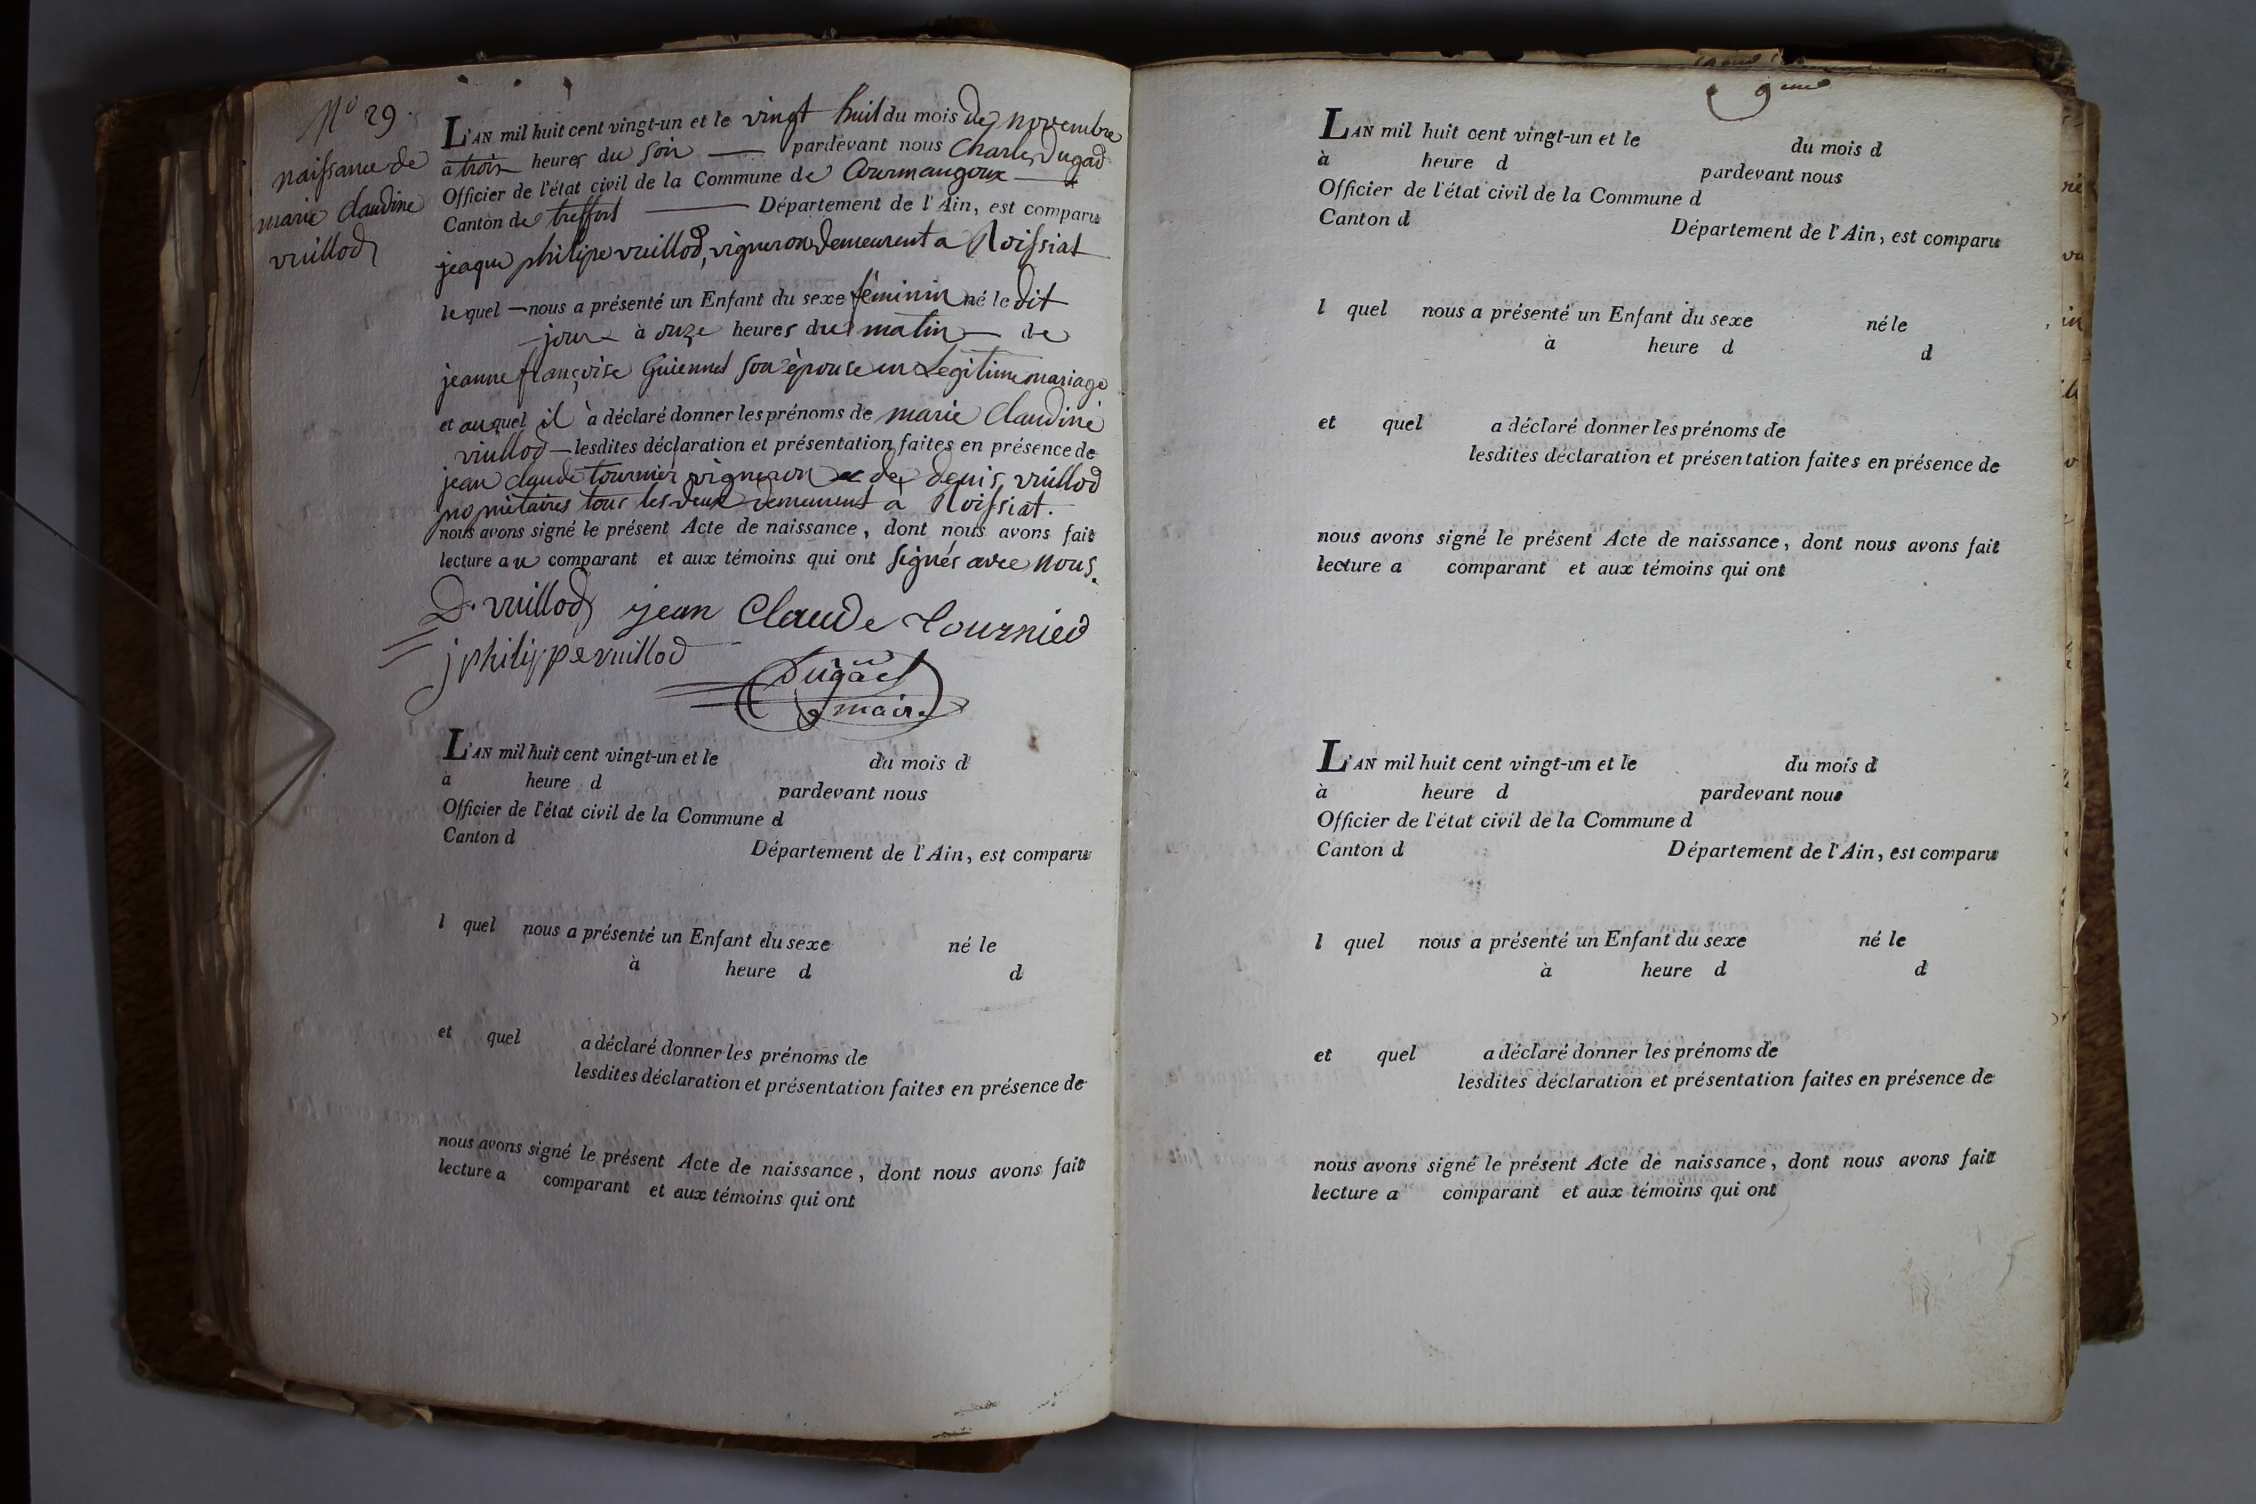 No 29.
naissance de
marie Claudine
vuillod
L'AN mil huit cent vingt-un et le vingt huit du mois de novembre
à trois heures du soir — pardevant nous Charles Dugad
Officier de l'état civil de la Commune de Courmangoux —
Canton de treffort — Département de l'Ain, est comparu
jeaque philipe vuillod, vigneron demeurent a Roissiat
lequel — nous a présenté un Enfant du sexe féminin né le dit
— jour — à onze heures du matin — de
jeanne françoise Guiennet son épouse en Legitime mariage
et auquel il à déclaré donner les prénoms de marie Claudine
vuillod — lesdites déclaration et présentation faites en présence de
jean claude tournier vigneron et de denis vuillod
propriétaires tous les deux demeurent à Roissiat.
nous avons signé le présent Acte de naissance, dont nous avons fait
lecture au comparant et aux témoins qui ont signés avec nous.
D. vuillod jean Claude Tournied
j philippe vuillod
Dugad
maire
L'AN mil huit cent vingt-un et le du mois d
à heure d pardevant nous
Officier de l'état civil de la Commune d
Canton d Département de l'Ain, est comparu
l quel nous a présenté un Enfant du sexe né le
à heure d d
et quel a déclaré donner les prénoms de
lesdites déclaration et présentation faites en présence de
nous avons signé le présent Acte de naissance, dont nous avons fait
lecture a comparant et aux témoins qui ont
9eme
L'AN mil huit cent vingt-un et le du mois d
à heure d pardevant nous
Officier de l'état civil de la Commune d
Canton d Département de l'Ain, est comparu
l quel nous a présenté un Enfant du sexe né le
à heure d d
et quel a déclaré donner les prénoms de
lesdites déclaration et présentation faites en présence de
nous avons signé le présent Acte de naissance, dont nous avons fait
lecture a comparant et aux témoins qui ont
L'AN mil huit cent vingt-un et le du mois d
à heure d pardevant nous
Officier de l'état civil de la Commune d
Canton d Département de l'Ain, est comparu
l quel nous a présenté un Enfant du sexe né le
à heure d d
et quel a déclaré donner les prénoms de
lesdites déclaration et présentation faites en présence de
nous avons signé le présent Acte de naissance, dont nous avons fait
lecture a comparant et aux témoins qui ont